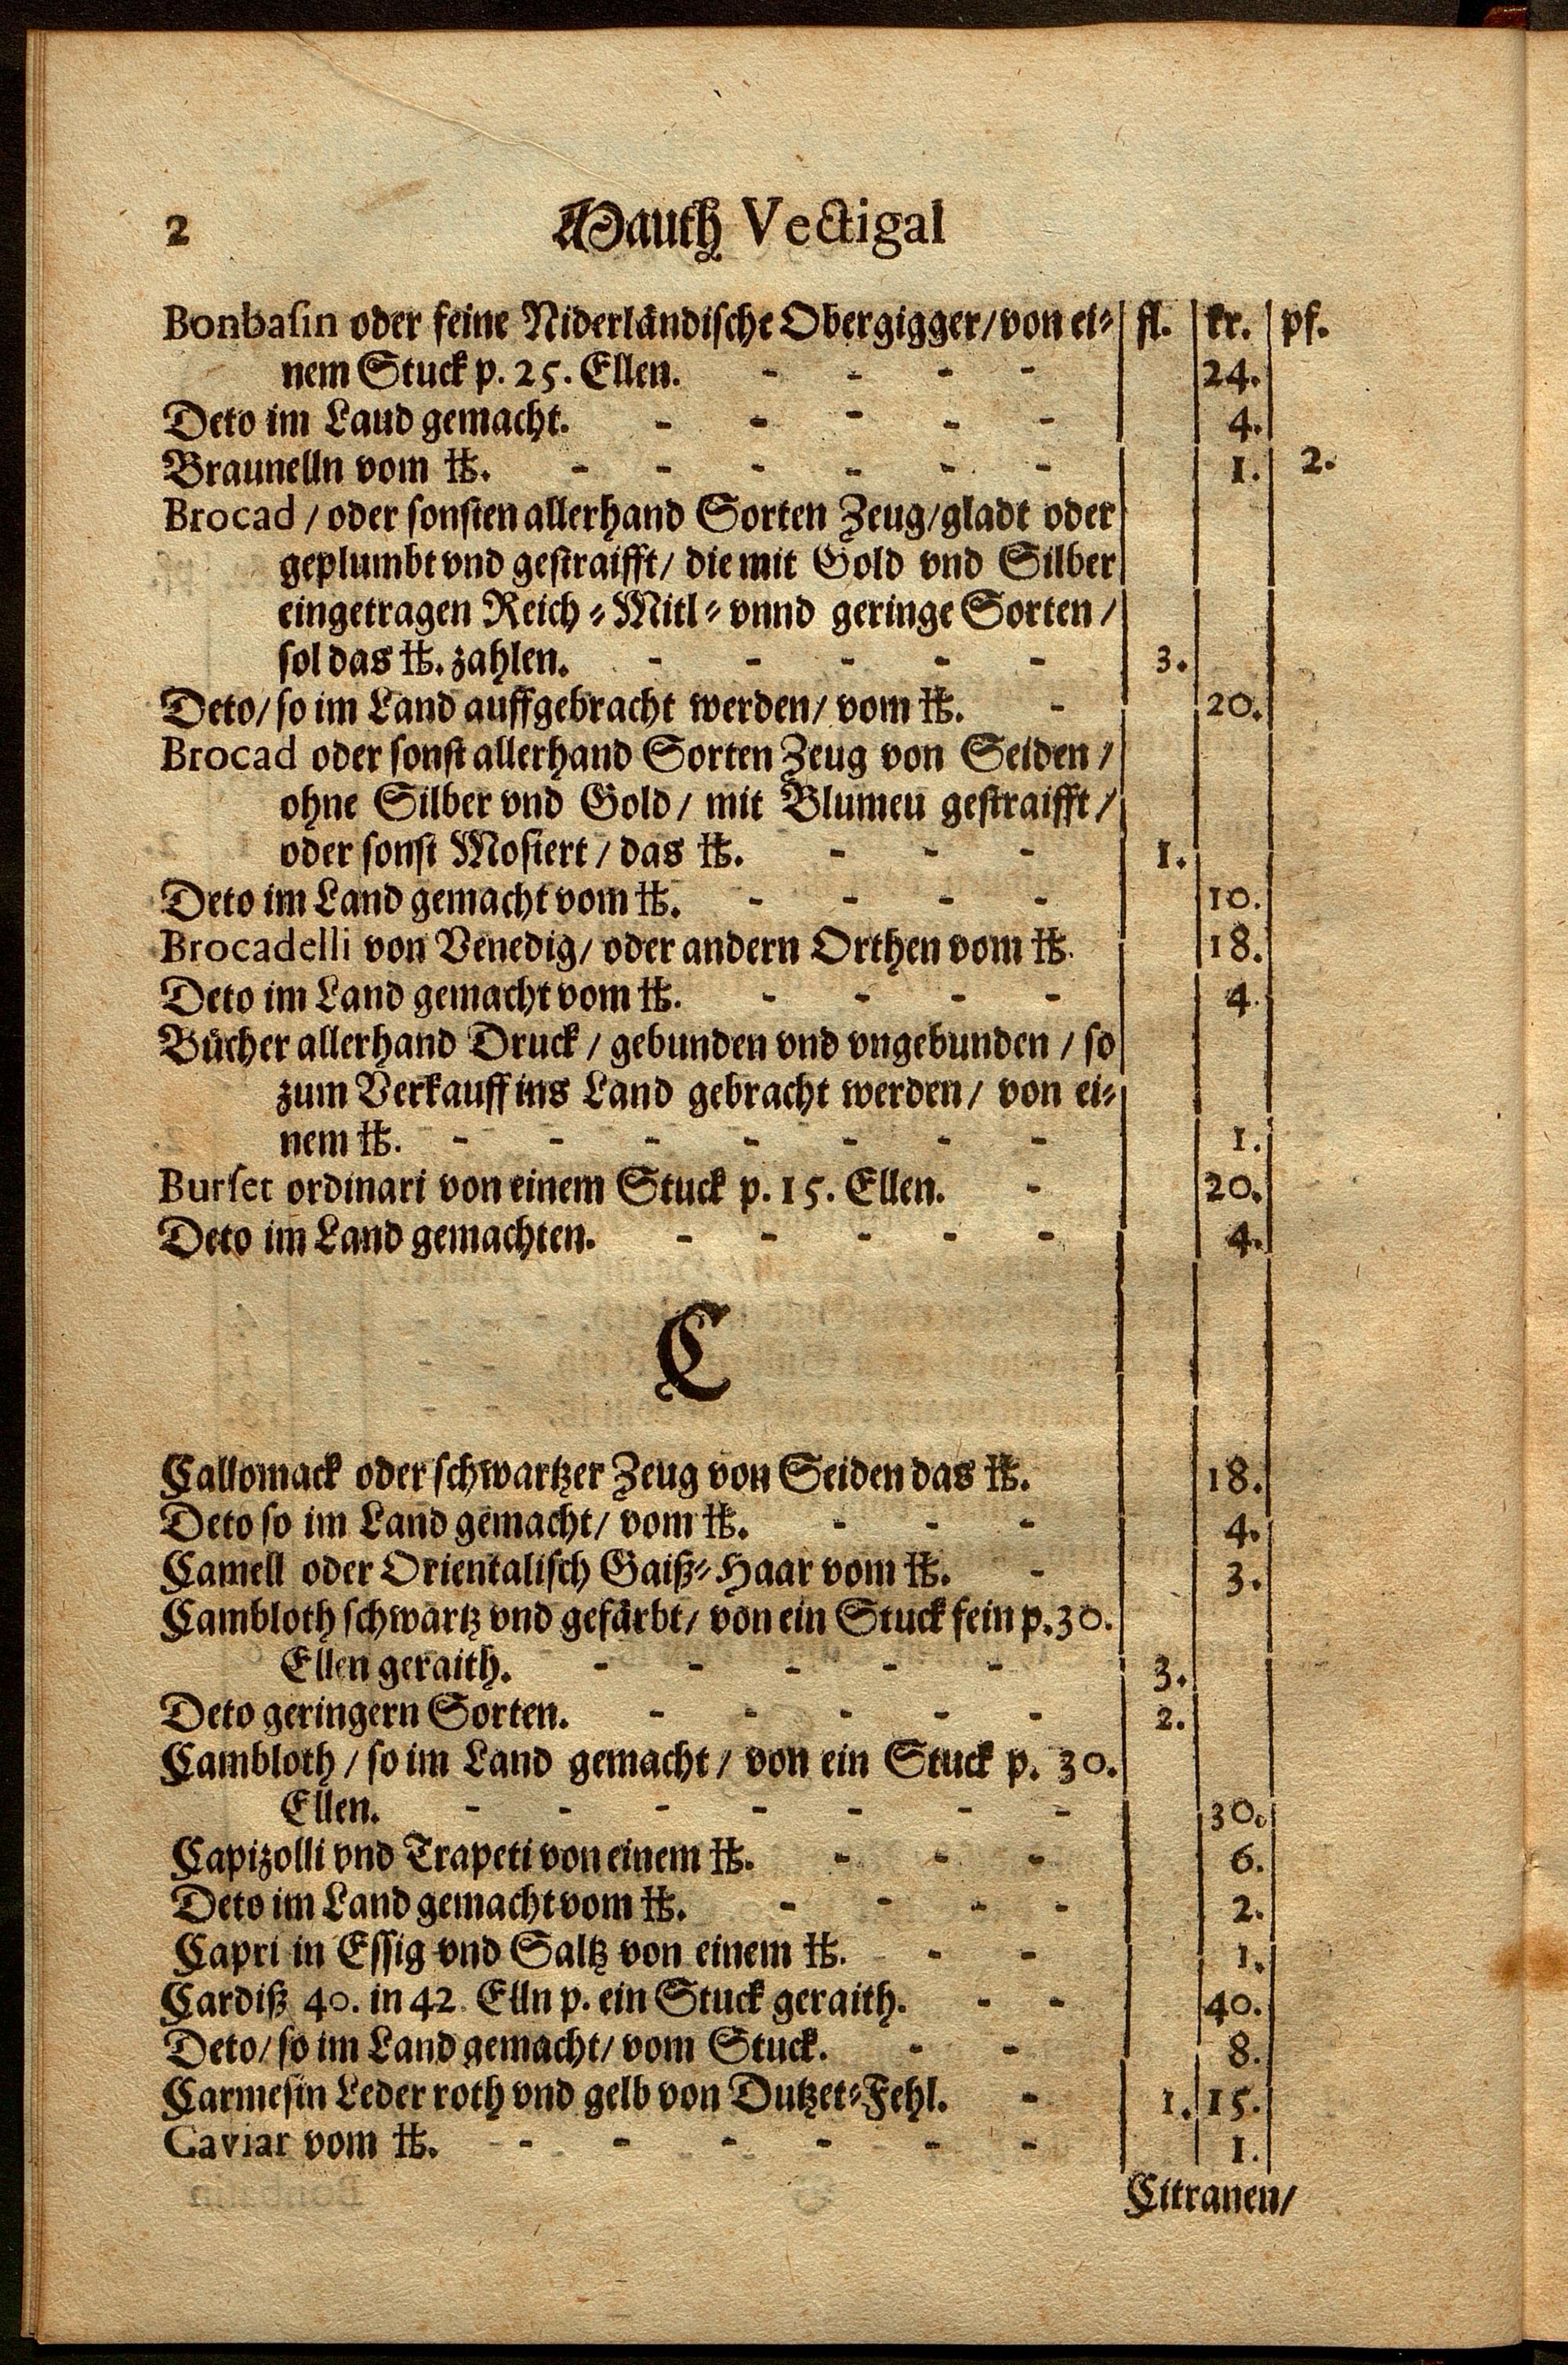 2 Mauth Vectigal
Bonbasin oder feine Niderländische Obergigger/ von ei⸗ fl. kr. pf.
nem Stuck p. 25. Ellen. - - - - 24.
Deto im Laud gemacht. - - - - - 4.
Braunelln vom ℔. - - - - - - 1. 2.
Brocad / oder sonsten allerhand Sorten Zeug/ gladt oder
geplumbt vnd gestraifft/ die mit Gold vnd Silber
eingetragen Reich⸗ Mitl⸗ vnnd geringe Sorten /
sol das ℔. zahlen. - - - - - 3.
Deto/ so im Land auffgebracht werden/ vom ℔. - 20.
Brocad oder sonst allerhand Sorten Zeug von Seiden /
ohne Silber vnd Gold / mit Blumeu gestraifft /
oder sonst Mosiert / das ℔. - - - 1.
Deto im Land gemacht vom ℔. - - - - 10.
Brocadelli von Venedig/ oder andern Orthen vom ℔. 18.
Deto im Land gemacht vom ℔. - - - - 4.
Bücher allerhand Druck / gebunden vnd vngebunden / so
zum Verkauff ins Land gebracht werden / von ei⸗
nem ℔. - - - - - - - 1.
Burset ordinari von einem Stuck p. 15. Ellen. - 20.
Deto im Land gemachten. - - - - - 4.
C
Callomack oder schwartzer Zeug von Seiden das ℔. 18.
Deto so im Land gemacht/ vom ℔. - - - 4.
Camell oder Orientalisch Gaiß⸗Haar vom ℔. - 3.
Cambloth schwartz vnd gefärbt/ von ein Stuck fein p. 30.
Ellen geraith. - - - - - 3.
Deto geringern Sorten. - - - - - 2.
Cambloth / so im Land gemacht / von ein Stuck p. 30.
Ellen. - - - - - - - 30.
Capizolli vnd Trapeti von einem ℔. - - - 6.
Deto im Land gemacht vom ℔. - - - - 2.
Capri in Essig vnd Saltz von einem ℔. - - 1.
Cardiß 40. in 42. Elln p. ein Stuck geraith. - - 40.
Deto/ so im Land gemacht/ vom Stuck. - - 8.
Carmesin Leder roth vnd gelb von Dutzet⸗Fehl. - 1. 15.
Caviar vom ℔. - - - - - - 1.
Citranen/